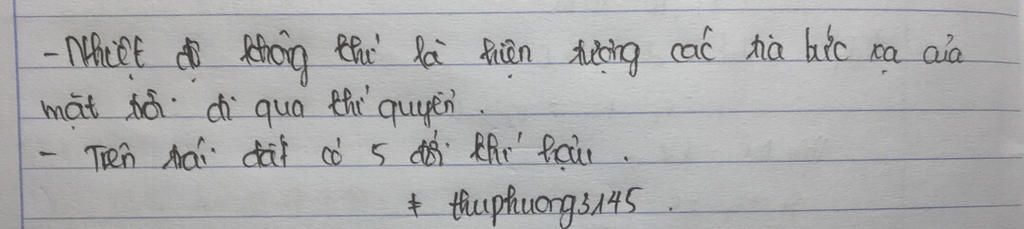 - Nhiệt độ không khí là hiện tượng các tia bức xạ của
mặt trời đi qua khí quyển.
- Trên trái đất có 5 đới khí hậu.
* thuphuong3145.